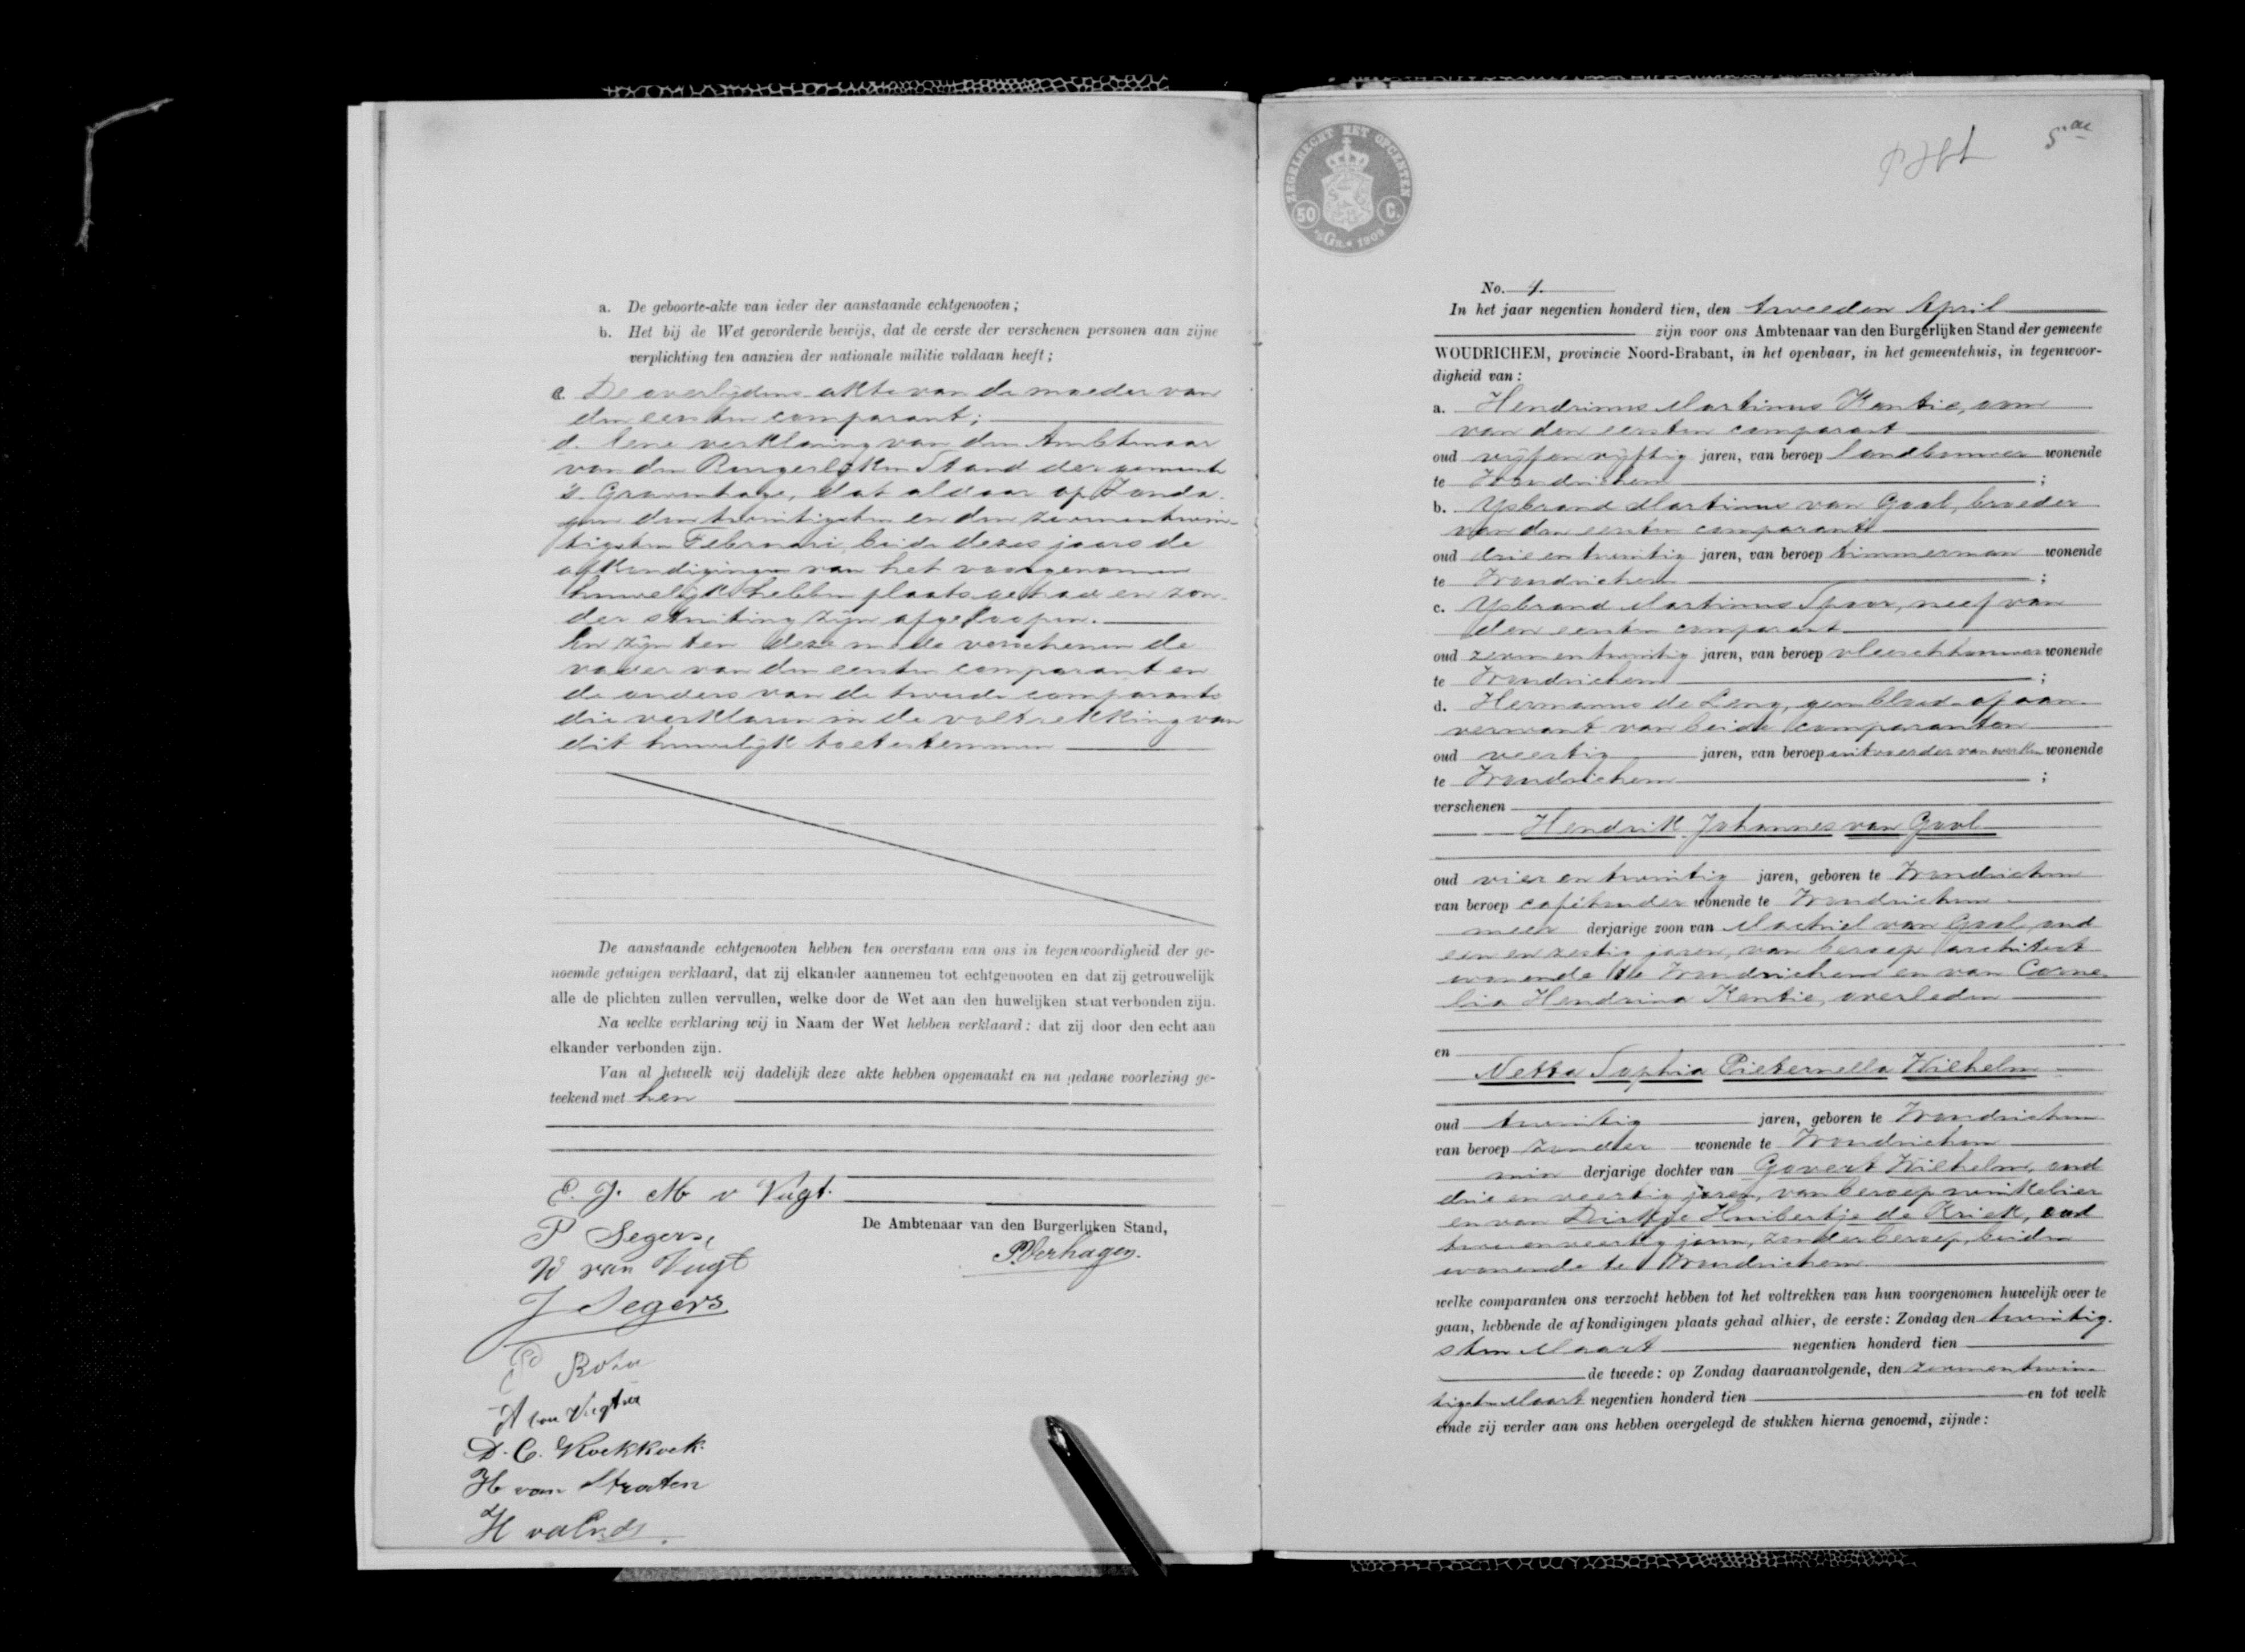 a. De geboorte-akte van ieder der aanstaande echtgenooten;
b. Het bij de Wet gevorderde bewijs, dat de eerste der verschenen personen aan zijne
verplichting ten aanzien der nationale militie voldaan heeft;
c. De overlijdens akte van de moeder van
den eersten comparant;
d. Eene verklaring van den Ambtenaar
van den Burgerlijken Stand der gemeente
's Gravenhage, dat aldaar op Zonda-
gen den twintigsten en den zevenentwin-
tigsten Februari, beide dezes jaars de
afkondigingen van het voorgenomen
huwelijk hebben plaats gehad en zon-
der stuiting zijn afgeloopen.
En zijn ten deze mede verschenen de
vader van den eersten comparant en
de ouders van de tweede comparante
die verklaren in de voltrekking van
dit huwelijk toetestemmen
De aanstaande echtgenooten hebben ten overstaan van ons in tegenwoordigheid der ge-
noemde getuigen verklaard, dat zij elkander aannemen tot echtgenooten en dat zij getrouwelijk
alle de plichten zullen vervullen, welke door de Wet aan den huwelijken staat verbonden zijn.
Na welke verklaring wij in Naam der Wet hebben verklaard: dat zij door den echt aan
elkander verbonden zijn.
Van al hetwelk wij dadelijk deze akte hebben opgemaakt en na gedane voorlezing ge-
teekend met hen
E. J. M v Vugt.
P Segers,
W van Vugt
J Segers
De Ambtenaar van den Burgerlijken Stand,
P. Verhagen.
D. C. Koekkoek.
H van Straten
ZEGELRECHT MET OPCENTEN
50 C.
'sGr. 1909
5de
No. 4.
In het jaar negentien honderd tien, den tweeden April
zijn voor ons Ambtenaar van den Burgerlijken Stand der gemeente
WOUDRICHEM, provincie Noord-Brabant, in het openbaar, in het gemeentehuis, in tegenwoor-
digheid van:
a. Hendrinus Martinus Kentie, oom
van den eersten comparant
oud vijfenvijftig jaren, van beroep landbouwer wonende
te Woudrichem;
b. Ysbrand Martinus van Gaal, broeder
van den eersten comparant
oud drieentwintig jaren, van beroep timmerman wonende
te Woudrichem;
c. Ysbrand Martinus Spoor, neef van
den eersten comparant
oud zevenentwintig jaren, van beroep vleeschhouwer wonende
te Woudrichem;
d. Hermanus de Leng, geen bloed of aan-
verwant van beide comparanten
oud veertig jaren, van beroep uitvoerder van werken wonende
te Woudrichem;
verschenen
Hendrik Johannes van Gaal
oud vierentwintig jaren, geboren te Woudrichem
van beroep caféhouder wonende te Woudrichem
meer derjarige zoon van Machiel van Gaal, oud
eenenzestig jaren, van beroep architect
wonende te Woudrichem en van Corne-
lia Hendrina Kentie, overleden
en
Netta Sophia Pieternella Wilhelm
oud twintig jaren, geboren te Woudrichem
van beroep zonder wonende te Woudrichem
min derjarige dochter van Govert Wilhelm, oud
drieenveertig jaren, van beroep winkelier
en van Dirkje Huibertje de Kriek, oud
tweeenveertig jaren, zonder beroep, beiden
wonende te Woudrichem
welke comparanten ons verzocht hebben tot het voltrekken van hun voorgenomen huwelijk over te
gaan, hebbende de afkondigingen plaats gehad alhier, de eerste: Zondag den twintig-
sten Maart negentien honderd tien
de tweede: op Zondag daaraanvolgende, den zevenentwin-
tigsten Maart negentien honderd tien en tot welk
einde zij verder aan ons hebben overgelegd de stukken hierna genoemd, zijnde: